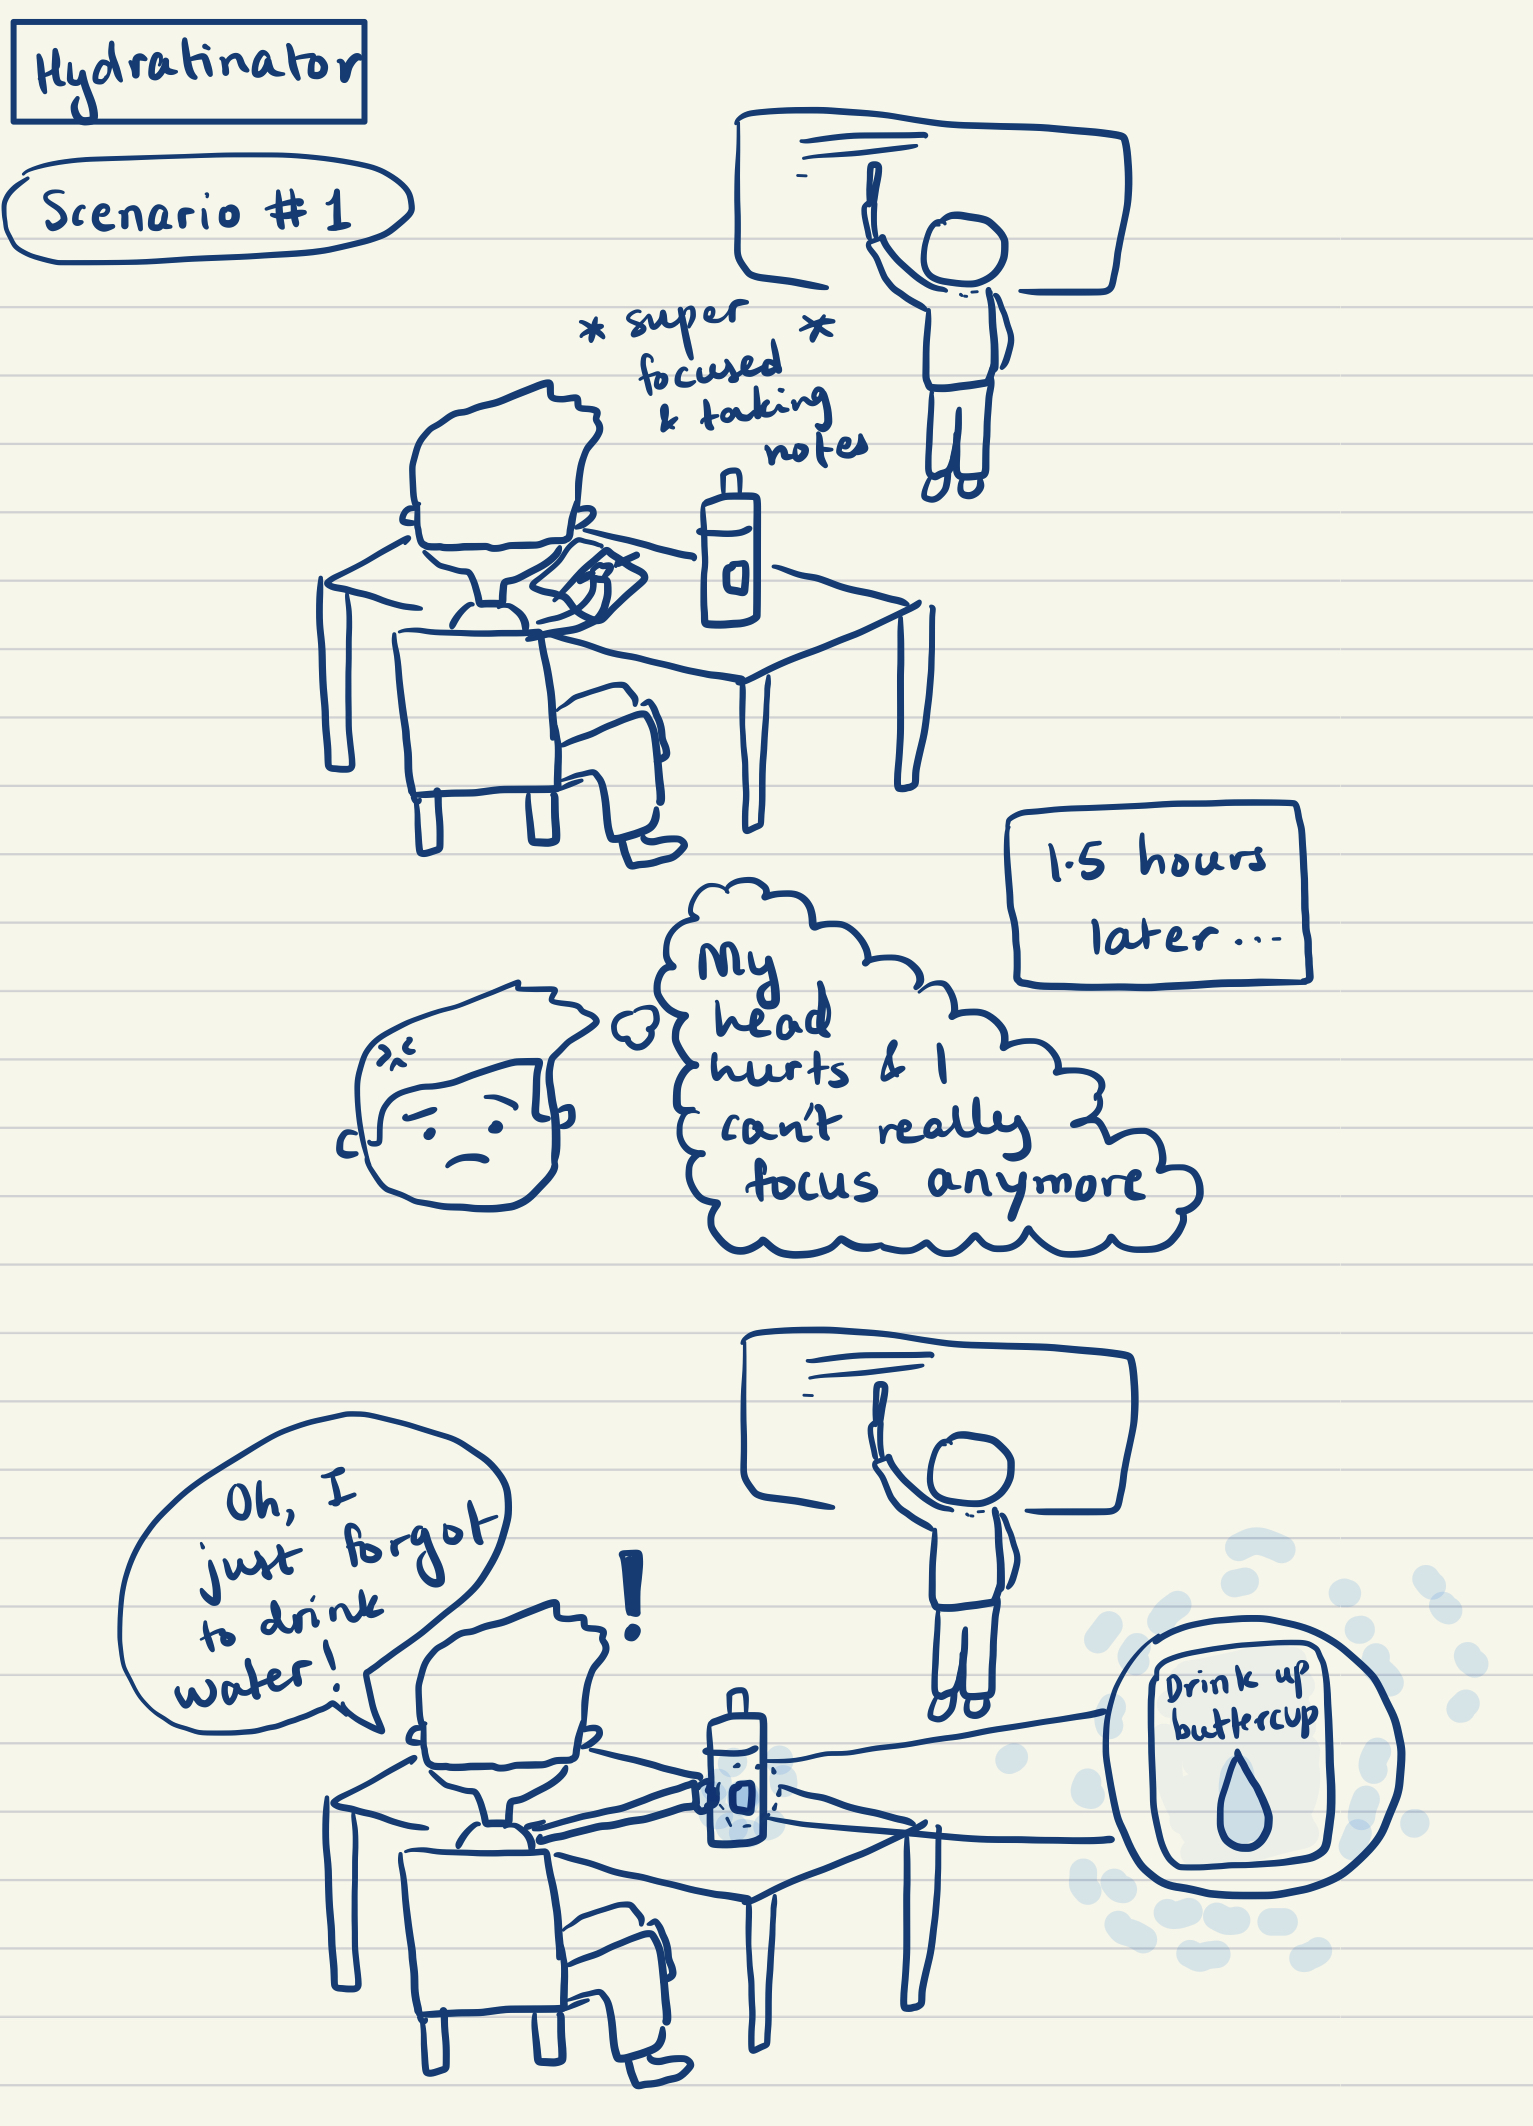 Hydratinator
Scenario #1
* super *
focused
& taking
notes
1.5 hours
later...
My
head
hurts & I
can't really
focus anymore
Oh, I
just forgot
to drink
water!
!
Drink up
buttercup